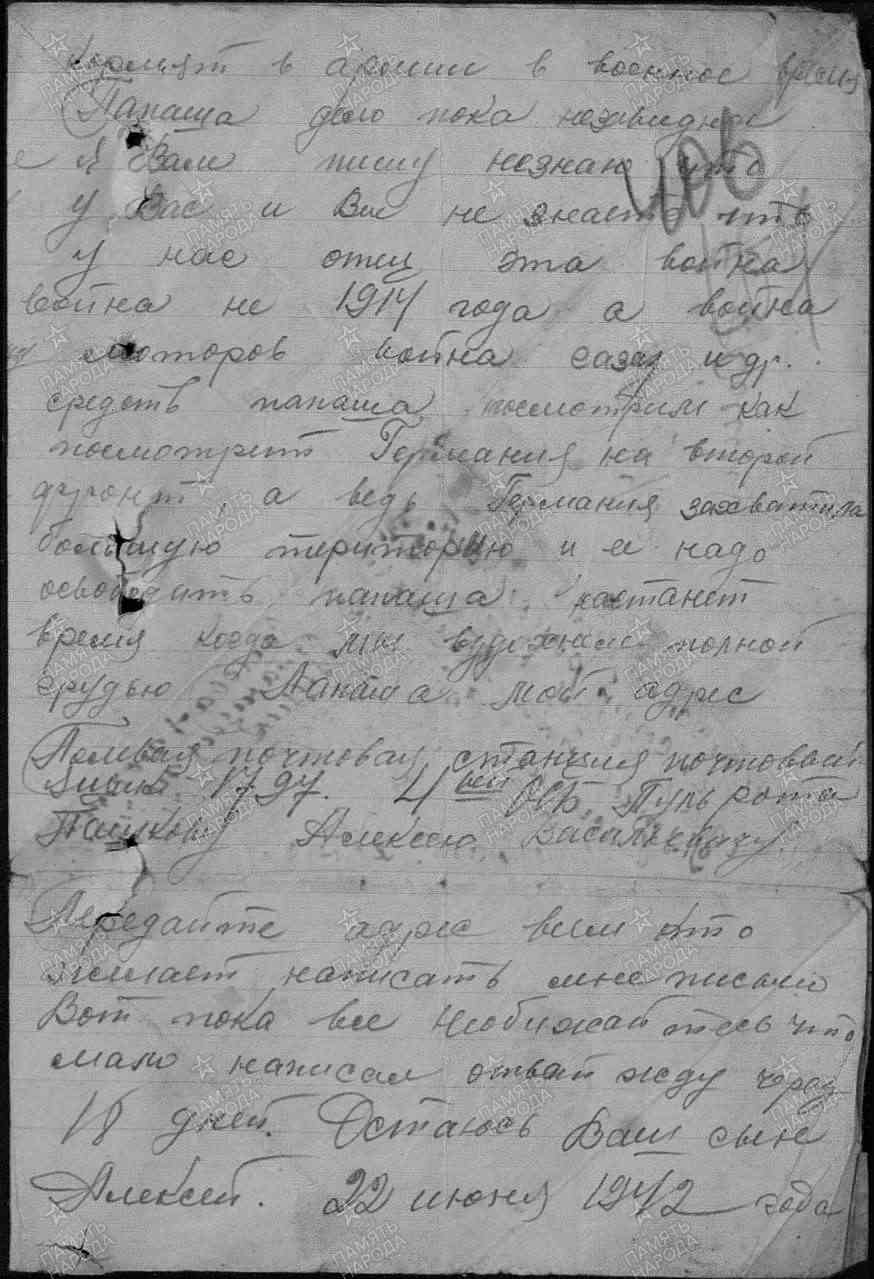 кормят в армии в военное время
Папаша дело пока незавидное
я Вам пишу незнаю что
406
у Вас и Вы не знаете что
у нас отец эта война
война не 1914 года а война
моторов война и др.
средств папаша посмотрим как
посмотрит Германия на второй
фронт, а ведь Германия захватила
большую територию и ее надо
освободить папаша, настанет
время когда мы вздохнем полной
грудью Папаша мой адрес
Полевая почтовая станция почтовый
ящик 1797. 4 ОСБ Пуль рота
Алексею Васильевичу
Передайте адрес всем кто
желает написать мне письмо
Вот пока все Необижайтесь что
мало написал ответ жду через
18 дней. Остаюсь Ваш сын
Алексей. 22 июня 1942 года
ПАМЯТЬ НАРОДА